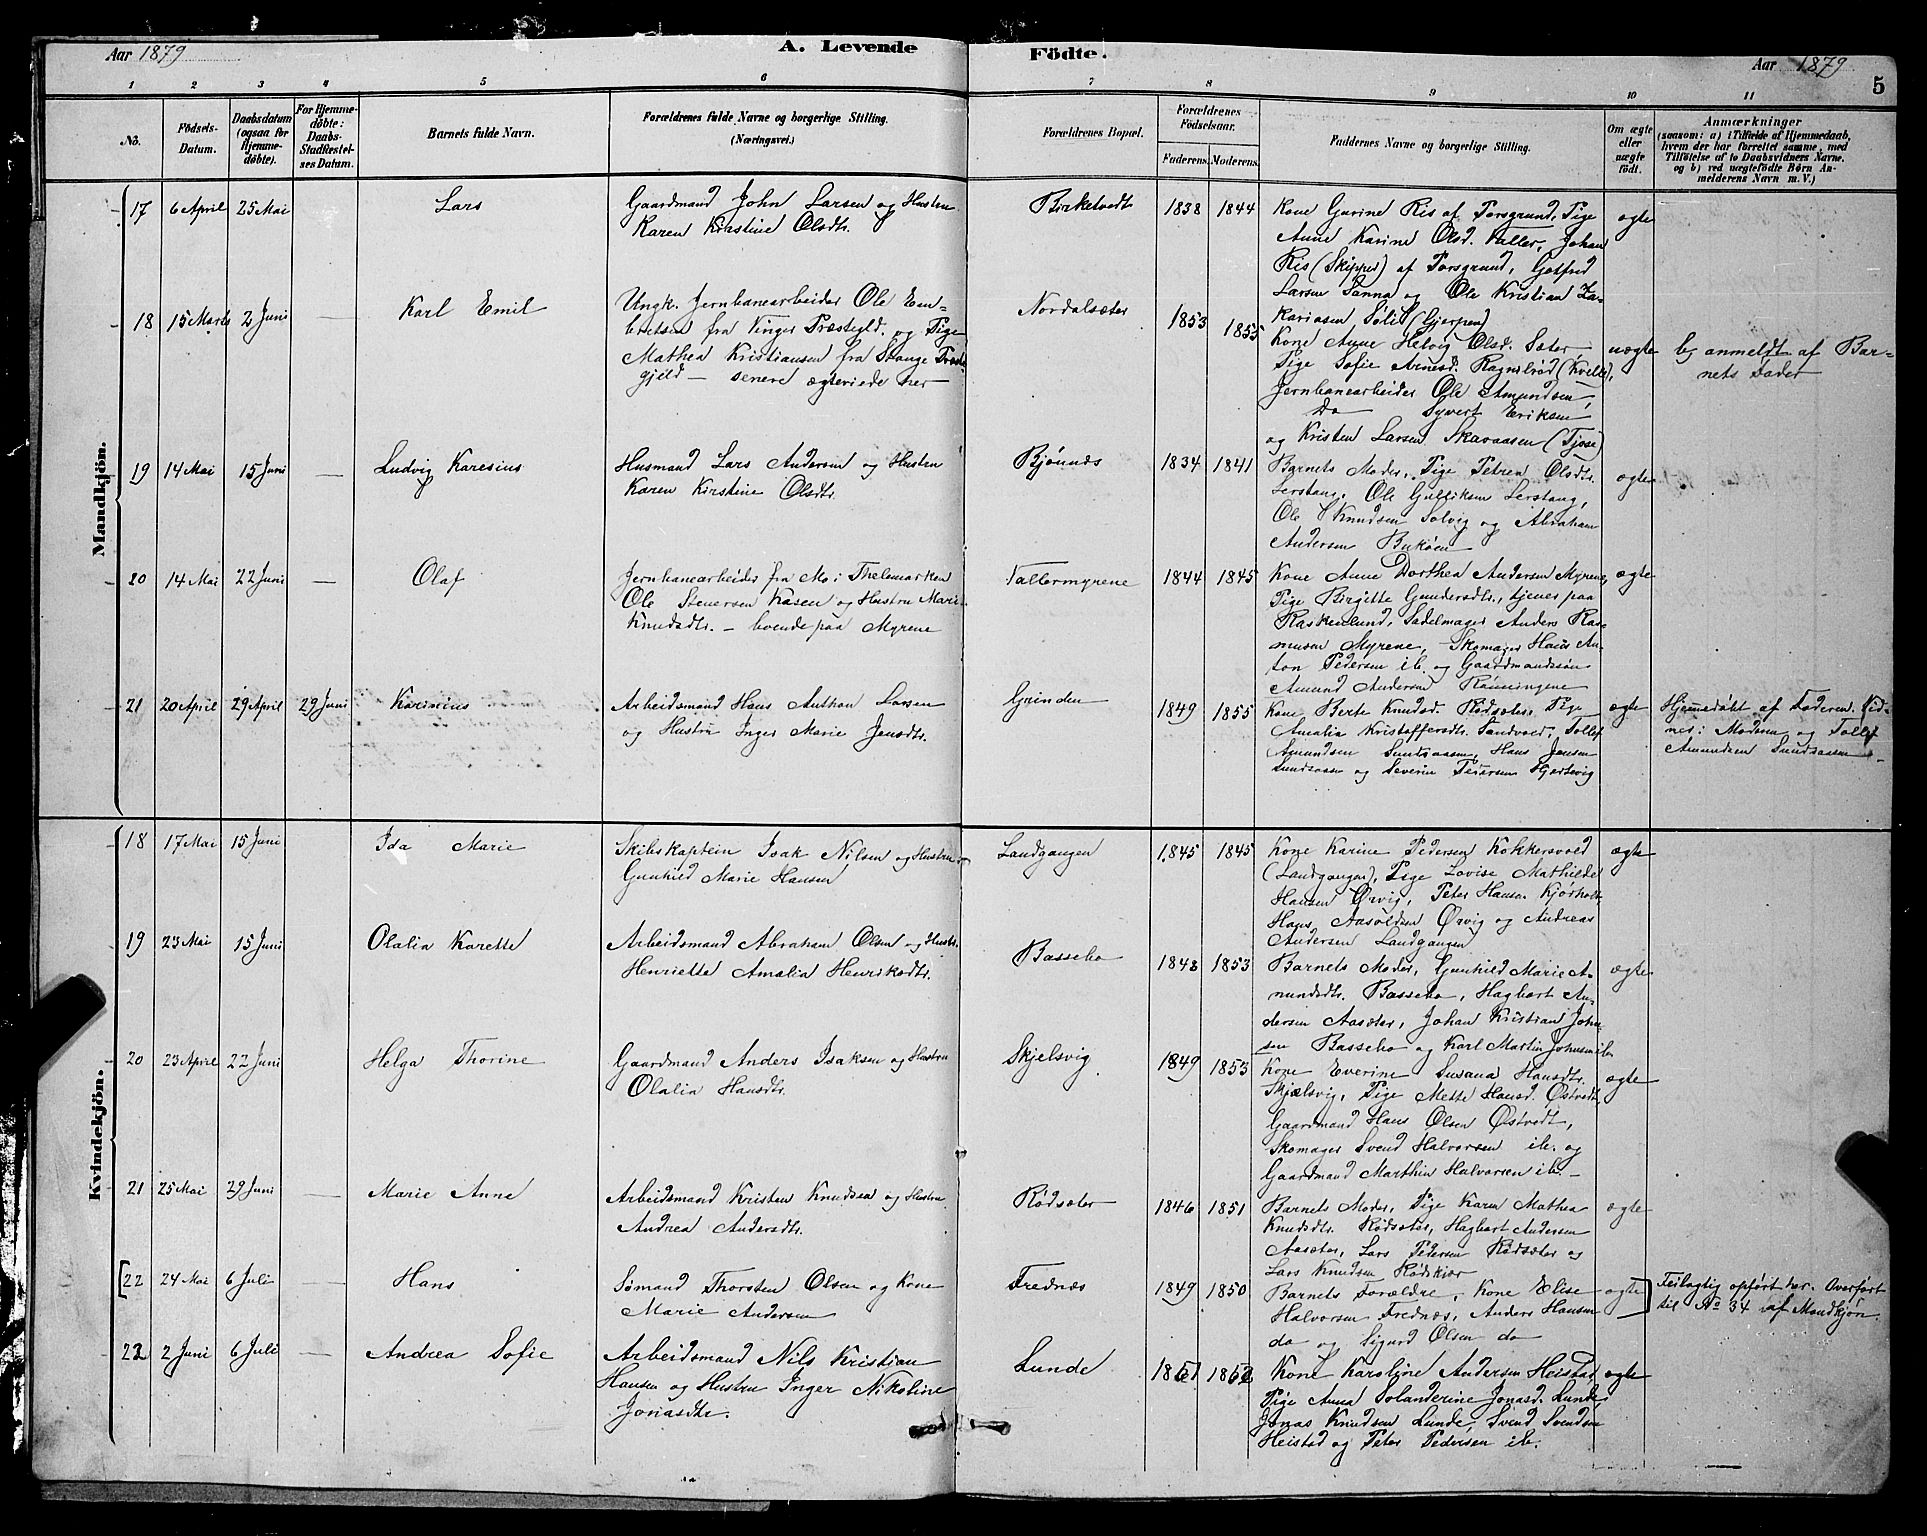 Aar 1879
A. Levende
Födte.
Aar 1879
5
1 2 3 4 5 6 7 8 9 10 11
No.
Födsels-
Datum.
Daabsdatum
(ogsaa for
Hjemme-
döbte).
For Hjemme-
döbte:
Daabs-
Stadfæstel-
ses Datum.
Barnets fulde Navn.
Forældrenes fulde Navne og borgerlige Stilling.
(Næringsvei.)
Forældrenes Bopæl.
Forældrenes
Födselsaar.
Faderens. Moderens.
Faddernes Navne og borgerlige Stilling.
Om ægte
eller
uægte
födt.
Anmærkninger
(saasom: a) i Tilfælde af Hjemmedaab,
hvem der har forrettet samme, med
Tilföielse af to Daabsvidners Navne.
og b) ved uægtefödte Børn An-
melderens Navn m. V.)
Mandkjön.
17 6 April 25 Mai Lars
Gaardmand John Larsen og Hustru
Karen Kirstine Olsdtr.
Birketvedt 1838 1844
Kone Gurine Ris af Porsgrund, Pige
Anne Karine Olsd. Valler, Johan
Ris (Skipper) af Porsgrund, Gotfred
Larsen Sanna og Ole Kristian Za-
kariasen Solie (Gjerpen)
ægte
18 15 Marts 2 Juni — Karl Emil
Ungk. Jernbanearbeider Ole Em-
bretsen fra Vinger Præstegld. og Pige
Mathea Kristiansen fra Stange Præste-
gjeld — senere ægteviede her —
Nordalsæter 1853 1855
Kone Anne Helvig Olsd. Sæter
Pige Sofie Arnesd. Ragnilrød (Kvelle),
Jernbanearbeider Ole Amundsen,
do Syvert Eriksen
og Kristen Larsen Skavaasen (Tjose)
uægte
b, anmeldt af Bar-
nets Fader
19 14 Mai 15 Juni — Ludvig Karesius
Husmand Lars Andersen og Hustru
Karen Kirstine Olsdtr.
Bjønnes 1834 1841
Barnets Moder, Pige Petrea Olsdtr.
Lerstang, Ole Gulliksen Lerstang,
Ole Knudsen Solvig og Abraham
Andersen Bukøen
ægte
20 14 Mai 22 Juni — Olaf
Jernbanearbeider fra Mo i Thelemarken
Ole Stenersen Kasen og Hustru Marie
Knudsdtr. — boende paa Myrene
Vallermyrene 1844 1845
Kone Anne Dorthea Andersen Myrene,
Pige Birgitte Gundersdtr., tjener paa
Raskenlund, Sadelmager Anders Ras-
musen Myrene, Skomager Hans An-
ton Pedersen ib. og Gaardmandssøn
Amund Andersen Rønningene
ægte
21 20 April 29 April 29 Juni Karinius
Arbeidsmand Hans Anthon Larsen
og Hustru Inger Marie Jensdtr.
Grinden 1849 1855
Kone Berte Knudsd. Rødsæter, Pige
Amalia Kristoffersdtr. Sandvold, Tollef
Amundsen Sundsaasen, Hans Jensen
Sundsaasen og Severin Pedersen Hjertevig
ægte
Hjemmedøbt af Faderen. Vid-
ner: Moderen og Tollef
Amundsen Sundsaasen.
Kvindekjön.
18 17 Mai 15 Juni Ida Marie
Skibskaptein Isak Nilsen og Hustru
Gunhild Marie Hansen
Landgangen 1845 1845
Kone Karine Pedersen Kokkersvold
(Landgangen), Pige Lovise Mathilde
Hansen Ørvig, Peter Hansen Kjørholt,
Hans Aasoldsen Ørvig og Andreas
Andersen Landgangen
ægte
19 23 Mai 15 Juni Olalia Karette
Arbeidsmand Abraham Olsen og Hustr.
Henriette Amalia Henriksdtr.
Bassebo 1848 1853
Barnets Moder, Gunhild Marie A-
mundsdtr. Bassebo, Hagbart An-
dersen Aasæter, Johan Kristian John-
sen Bassebo og Karl Martin Johnsen ib.
ægte
20 23 April 22 Juni Helga Thorine
Gaardmand Anders Isaksen og Hustru
Olalia Hansdtr.
Skjelsvig 1849 1853
Kone Everine Susana Hansdtr.
Skjælsvig, Pige Mette Hansd. Østvedt,
Gaardmand Hans Olsen Østvedt,
Skomager Svend Halvorsen ib. og
Gaardmand Marthin Halvorsen ib. —
ægte
21 25 Mai 29 Juni — Marie Anne
Arbeidsmand Kristen Knudsen og Hustru
Andrea Andersdtr.
Rødsæter 1846 1851
Barnets Moder, Pige Karen Mathea
Knudsdtr. Rødsæter, Hagbart Andersen
Aasæter, Lars Pedersen Rødsæter og
Lars Knudsen Rødskjær
ægte
[22 24 Mai 6 Juli — Hans
Sømand Thorsten Olsen og Kone
Marie Andersen
Frednæs 1849 1850
Barnets Forældre, Kone Elise
Halvorsen Frednæs, Anders Hansen
do og Sigurd Olsen do
ægte]
Feilagtig opført her. Overført
til No 34 af Mandkjøn.
22 2 Juni 6 Juli — Andrea Sofie
Arbeidsmand Nils Kristian
Hansen og Hustru Inger Nikoline
Jonasdtr.
Lunde 1851 1852
Kone Karoline Andersen Heistad,
Pige Anna Solanderine Jonasd. Lunde,
Jonas Knudsen Lunde, Svend Svendsen
Heistad og Peter Pedersen ib.
ægte